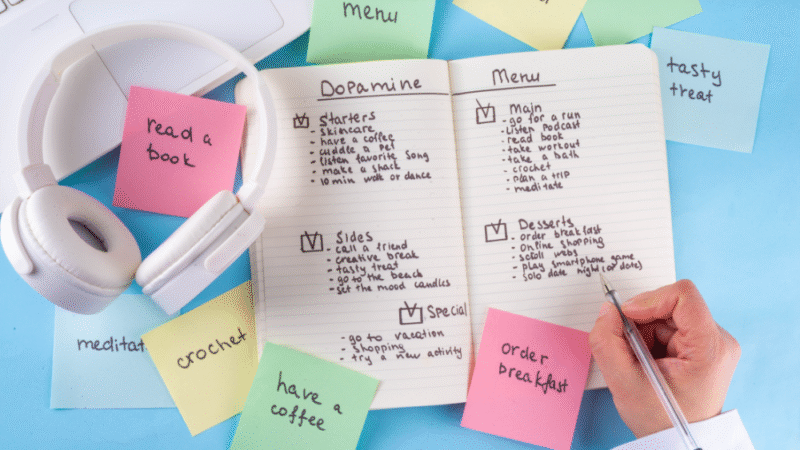 menu
tasty
treat
read a
book
Dopamine Menu
Starters
- skincare
- have a coffee
- cuddle a pet
- listen favorite song
- make a snack
- 10 min walk or dance
Main
- go for a run
- listen podcast
- read book
- take workout
- take a bath
- crochet
- plan a trip
- meditate
Sides
- call a friend
- creative break
- tasty treat
- go to the beach
- set the mood candles
Desserts
- order breakfast
- online shopping
- scroll webs
- play smartphone game
- solo date night (or date)
Special
- go to vacation
- shopping
- try a new activity
meditat
crochet
have a
coffee
order
breakfast